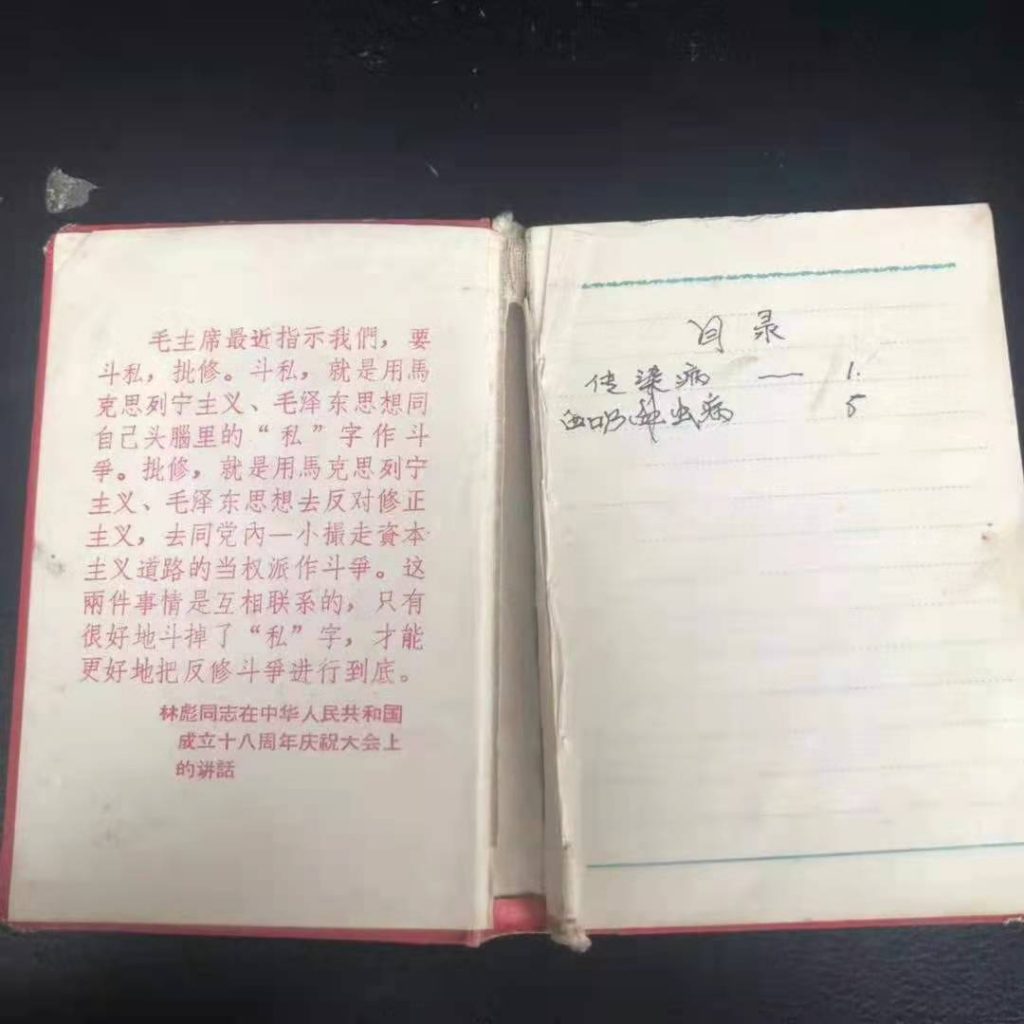 毛主席最近指示我們，要
斗私，批修。斗私，就是用馬
克思列宁主义、毛泽东思想同
自己头腦里的“私”字作斗
爭。批修，就是用馬克思列宁
主义、毛泽东思想去反对修正
主义，去同党內一小撮走資本
主义道路的当权派作斗爭。这
兩件事情是互相联系的，只有
很好地斗掉了“私”字，才能
更好地把反修斗爭进行到底。
林彪同志在中华人民共和国
成立十八周年庆祝大会上
的讲話
目录
传染病 —— 1.
血吸虫病 5